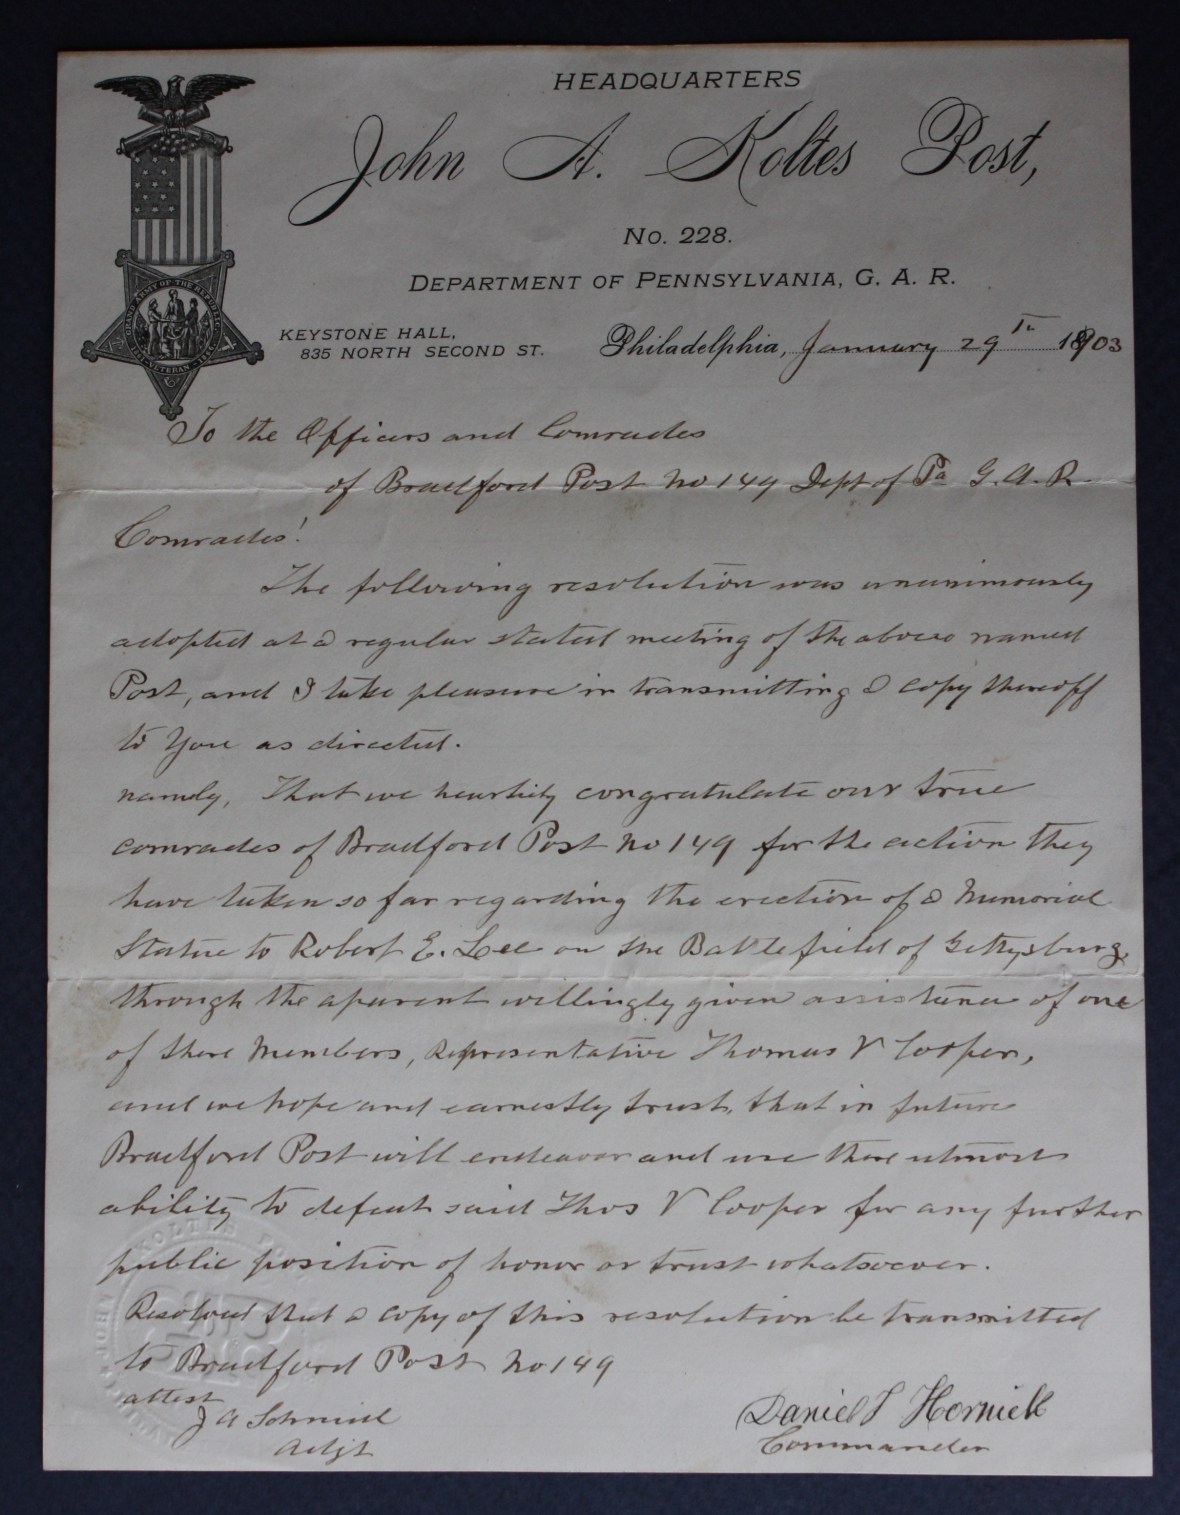 HEADQUARTERS
John A. Koltes Post,
No. 228.
DEPARTMENT OF PENNSYLVANIA, G. A. R.
KEYSTONE HALL,
835 NORTH SECOND ST.
Philadelphia, January 29th 1903
GRAND ARMY OF THE REPUBLIC
VETERAN
To the Officers and Comrades
of Bradford Post No 149 Dept of Pa G. A. R.
Comrades!
The following resolution was unanimously
adopted at a regular stated meeting of the above named
Post, and I take pleasure in transmitting a copy thereoff
to You as directed.
namely, That we heartily congratulate our true
comrades of Bradford Post No 149 for the action they
have taken so far regarding the erection of a Memorial
Statue to Robert E. Lee on the Battlefield of Gettysburg,
through the aparent willingly given assistance of one
of there Members, Representative Thomas V Cooper,
and we hope and earnestly trust, that in future
Bradford Post will endeavor and use there utmost
ability to defeat said Thos V Cooper for any further
public position of honor or trust whatsoever.
Resolved that a copy of this resolution be transmitted
to Bradford Post No 149
attest
J A Schmid
Adjt
Daniel S Hornick
Commander
JOHN KOLTES PO